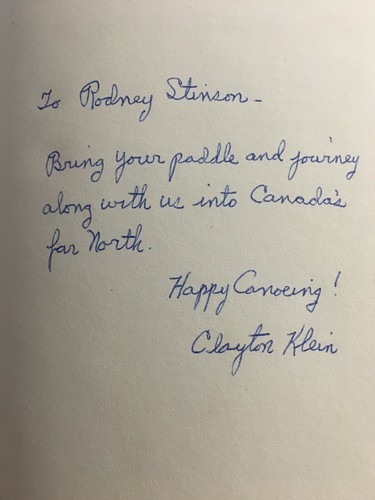 To Rodney Stinson -
Bring your paddle and journey
along with us into Canada's
far North.
Happy Canoeing!
Clayton Klein